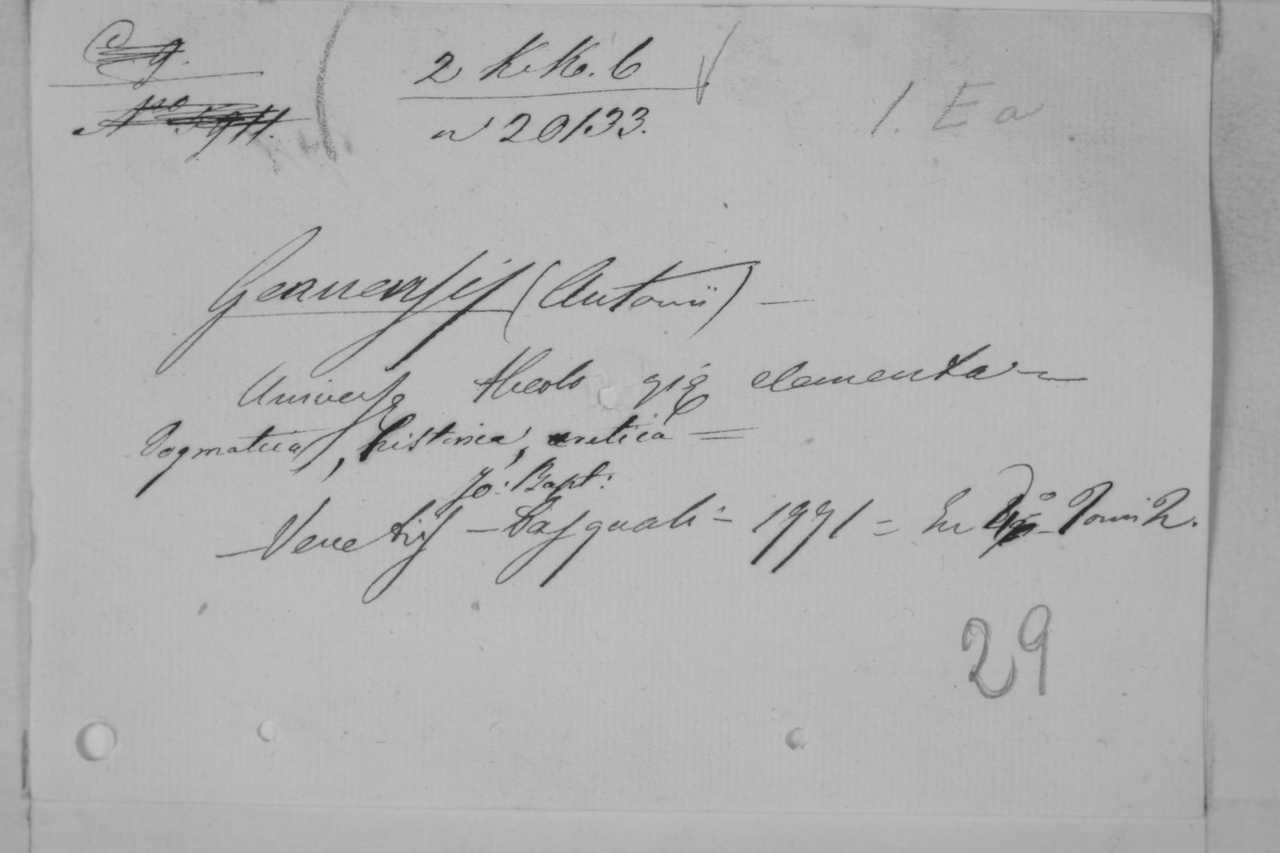 2 K.K. 6
n 20133.
1. Ea
Genuensis (Antonii) —
Universæ theologiæ elementa —
Dogmatica, historica, critica =
Jo: Bapt:
Venetiis — Pasquali - 1771 = In Tomi 2.
29